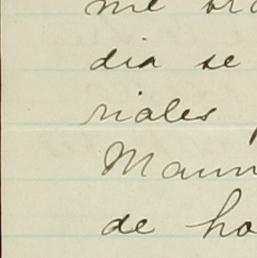 me
dia se
riales
de ho